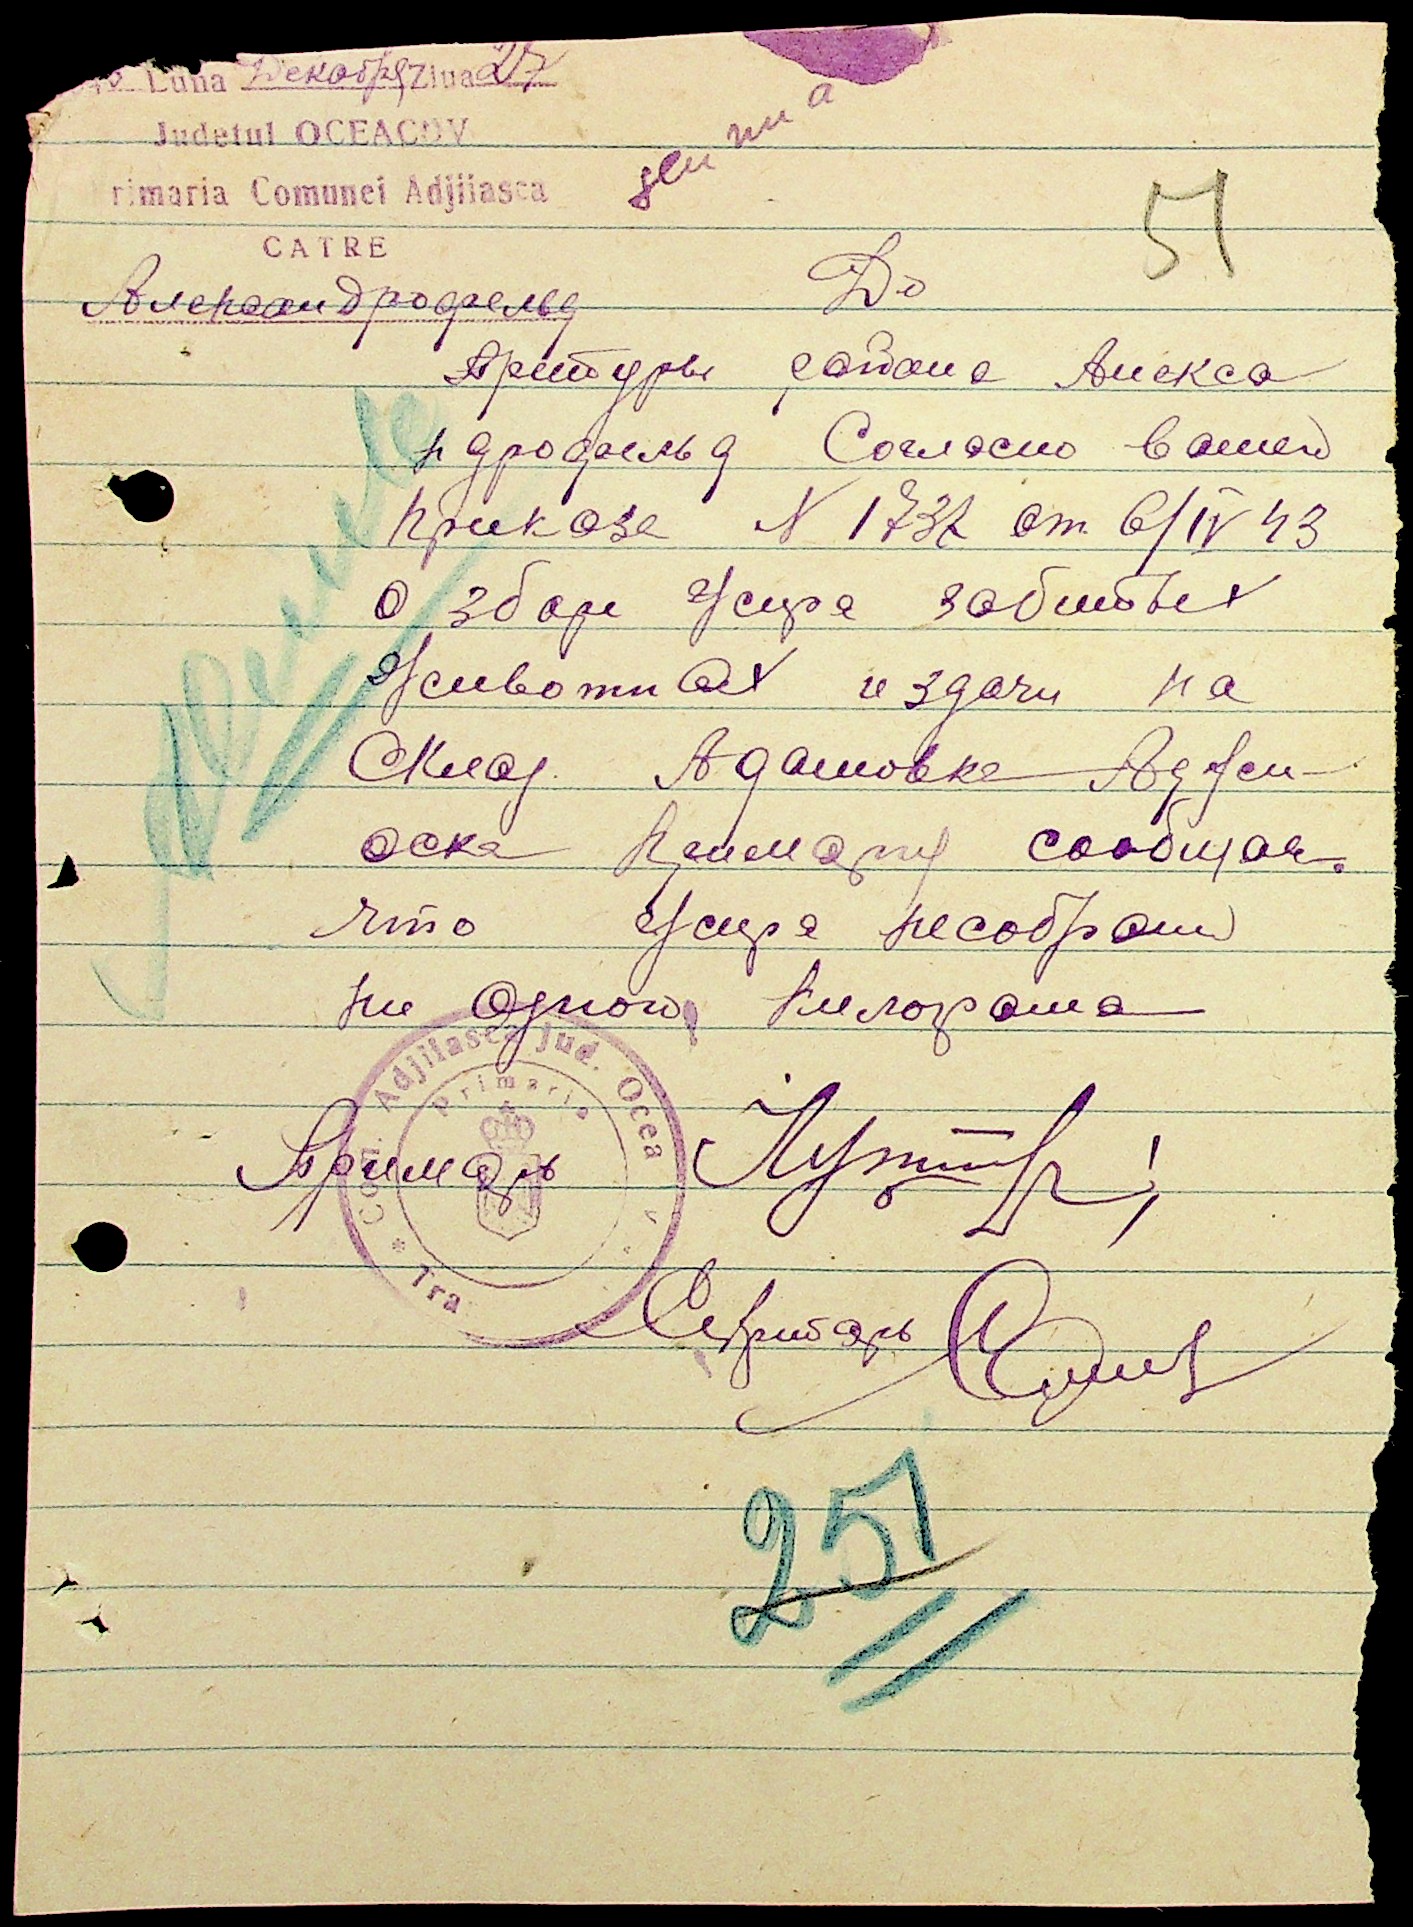 Luna Декабря Ziua 27
Judetul OCEACOV
rimaria Comunei Adjiiasca
CATRE
Александрофельд
51
До
Притуры района Алекса
ндрофельд Согласно вашей
Приказа N 1737 от 6/IV 43
о збори жира забитых
животных издачи на
Склад. Адамовка Аджи-
аска Примару сообщая.
что жира несобрани
ни одного килограма
Com. Adjiiasca Jud. Ocea
Primaria
Tra
Примарь
Секритарь
251